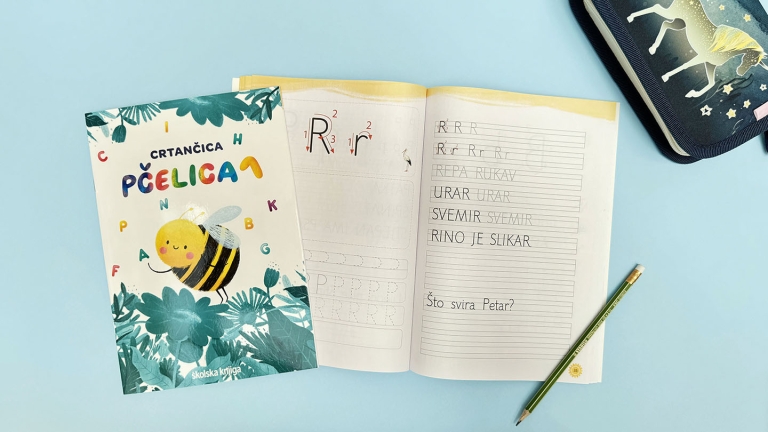 CRTANČICA
PČELICA 1
I
H
C
N
K
P
B
A
G
F
školska knjiga
R r
1 2 3 1 2
P P P P P P
R R R R R R
R R R
R r Rr Rr Rr
REPA RUKAV
URAR URAR
SVEMIR SVEMIR
RINO JE SLIKAR
Što svira Petar?